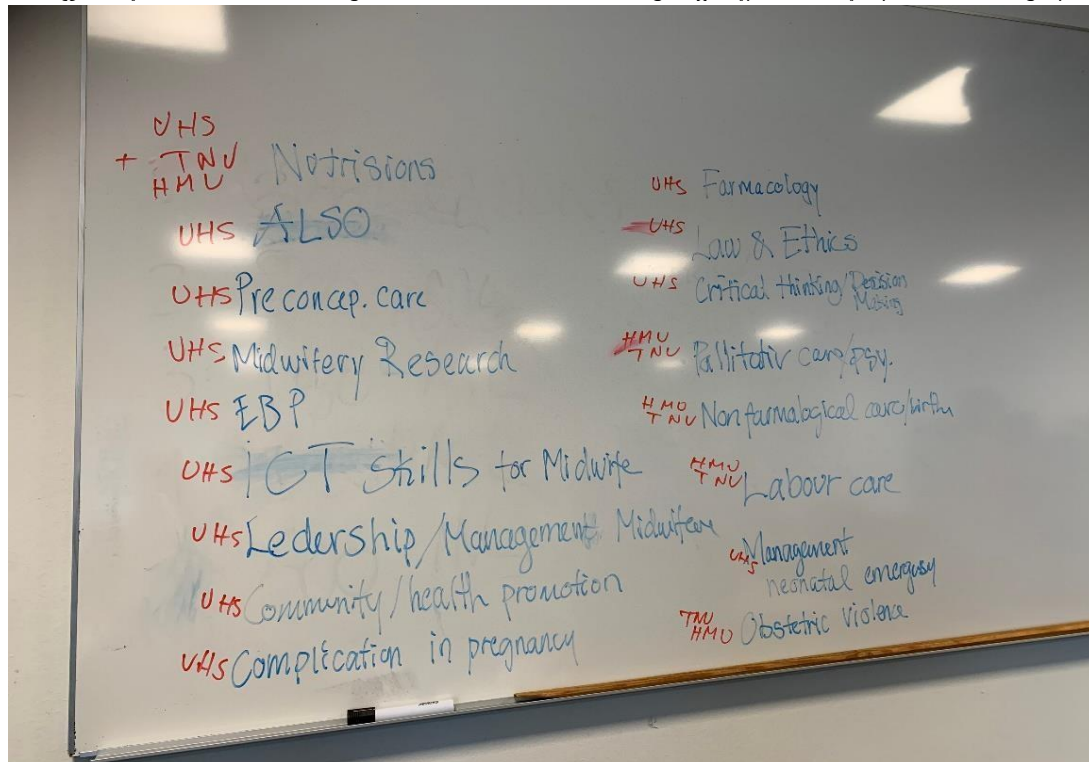 UHS
+ TNU Nutrisions
HMU
UHS ALSO
UHS Preconcep. care
UHS Midwifery Research
UHS EBP
UHS ICT Skills for Midwife
UHS Ledership/Management Midwifery
UHS Community/health promotion
UHS Complication in pregnancy
UHS Farmacology
UHS Law & Ethics
UHS Critical thinking/Decision
Making
HMU
TNU Pallitativ care/psy.
HMU
TNU Nonfarmalogical care/birth
HMU
TNU Labour care
UHS Management
neonatal emergusy
TNU
HMU Obstetric Violence